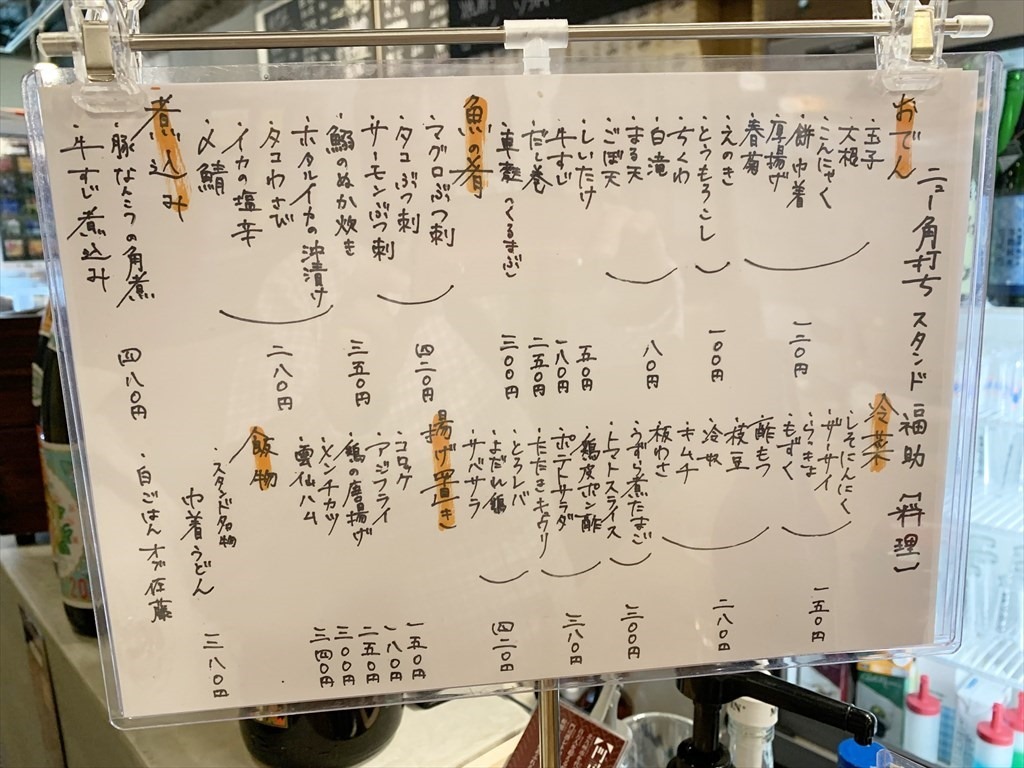 ニュー角打ち スタンド 福助 〔料理〕
おでん
・玉子
・大根
・こんにゃく
・餅巾着
・厚揚げ
・春菊
一二〇円
・えのき
・とうもろこし
一〇〇円
・ちくわ
・白滝
・まる天
・ごぼ天
八〇円
・しいたけ
五〇円
・牛すじ
一八〇円
・だし巻
二五〇円
・車麩(くるまぶ)
三〇〇円
魚の肴
・マグロぶつ刺
四二〇円
・タコぶつ刺
・サーモンぶつ刺
三五〇円
・鰯のぬか炊き
・ホタルイカの沖漬け
・タコわさび
・イカの塩辛
・〆鯖
二八〇円
煮込み
・豚なんこつの角煮
・牛すじ煮込み
四八〇円
冷菜
・しそにんにく
・ザーサイ
・らっきょ
・もずく
一五〇円
・酢もつ
・枝豆
・冷奴
・キムチ
・板わさ
二八〇円
・うずら煮たまご
・トマトスライス
三〇〇円
・鶏皮ポン酢
・ポテトサラダ
・たたきキュウリ
三八〇円
・とろレバ
・よだれ鶏
・サバサラ
四二〇円
揚げ置き
・コロッケ
一五〇円
・アジフライ
一八〇円
・鶏の唐揚げ
二五〇円
・メンチカツ
三〇〇円
・雲仙ハム
三四〇円
飯物
・スタンド名物
巾着うどん
三八〇円
・白ごはん オブ 佐藤